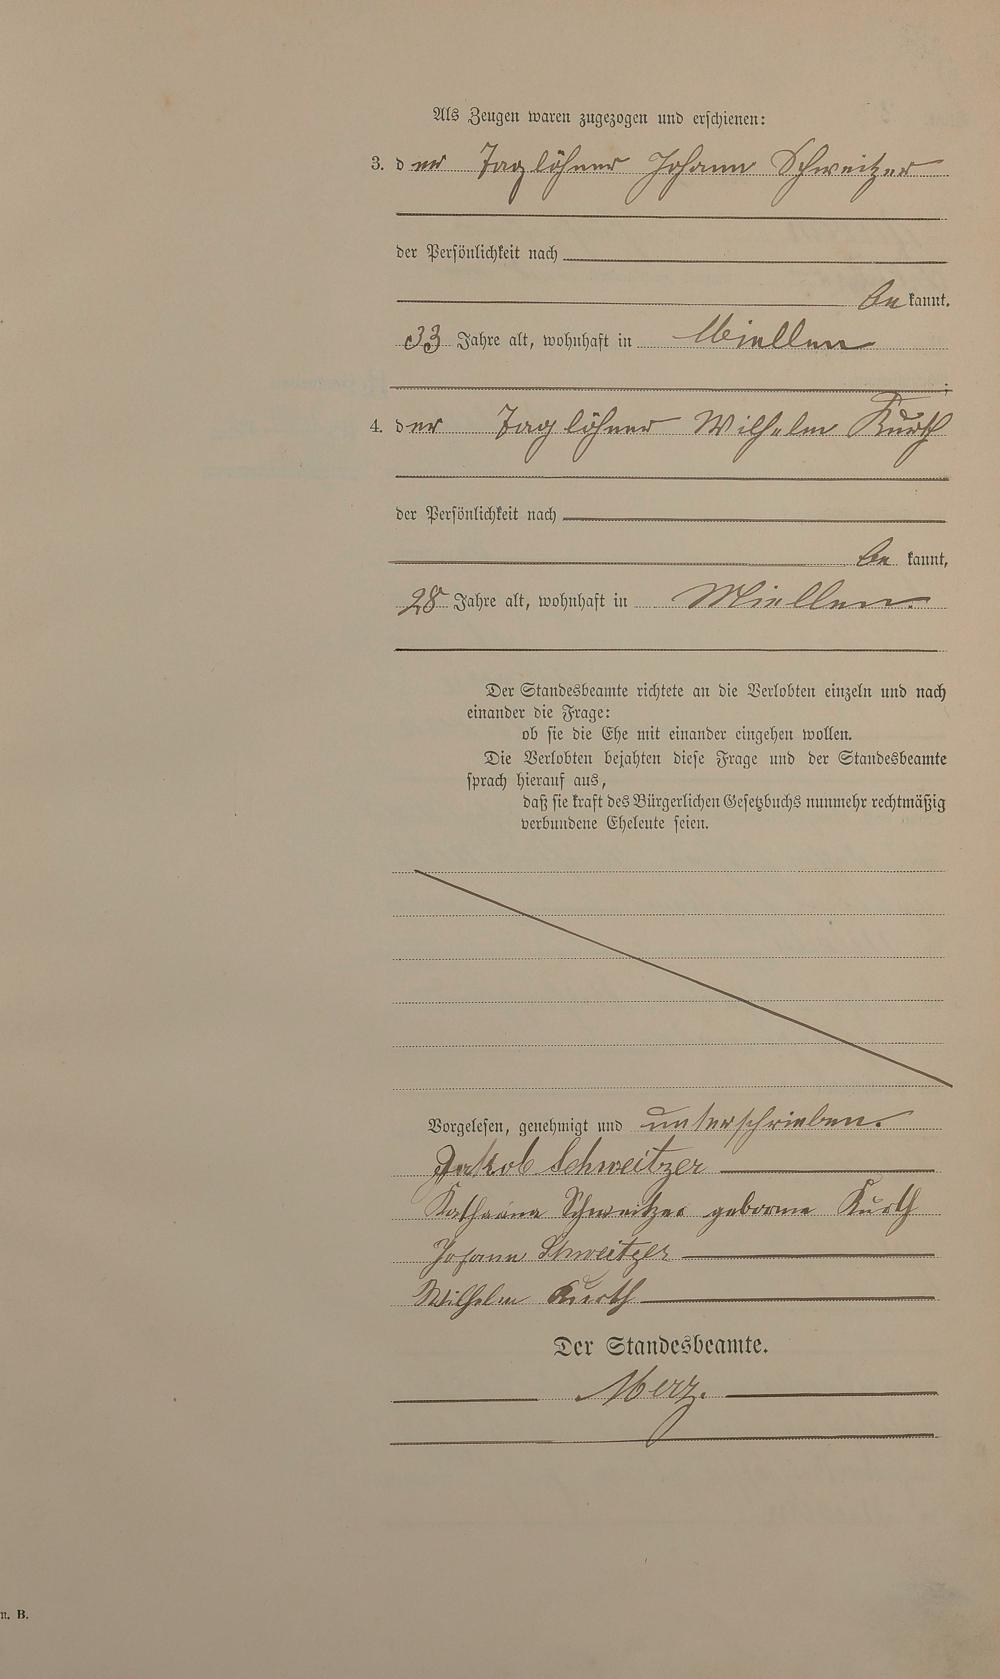 Als Zeugen waren zugezogen und erschienen:
3. der Taglöhner Johann Schweitzer
der Persönlichkeit nach
be kannt,
33 Jahre alt, wohnhaft in Miellen
;
4. der Taglöhner Wilhelm Kurth
der Persönlichkeit nach
be kannt,
28 Jahre alt, wohnhaft in Miellen.
Der Standesbeamte richtete an die Verlobten einzeln und nach
einander die Frage:
ob sie die Ehe mit einander eingehen wollen.
Die Verlobten bejahten diese Frage und der Standesbeamte
sprach hierauf aus,
daß sie kraft des Bürgerlichen Gesetzbuchs nunmehr rechtmäßig
verbundene Eheleute seien.
Vorgelesen, genehmigt und unterschrieben.
Jakob Schweitzer
Katharina Schweitzer geborene Kurth
Johann Schweitzer
Wilhelm Kurth
Der Standesbeamte.
Merz.
n. B.